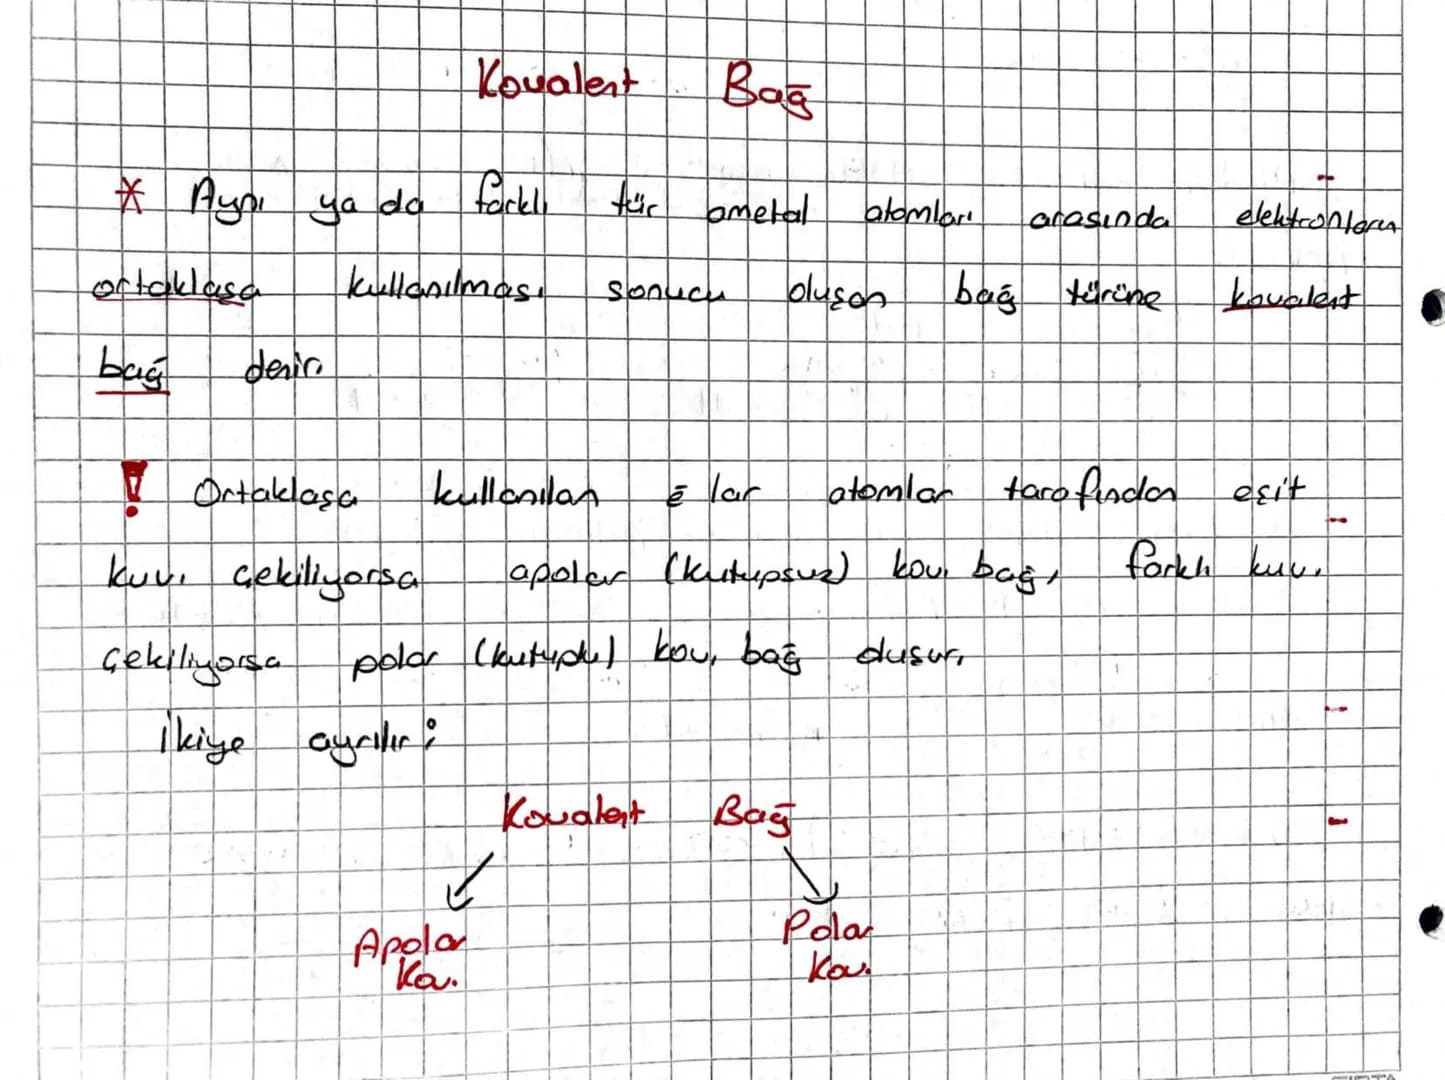 Kovalent Bağ
* Aynı ya da farklı tür ametal atomları arasında elektronların
ortaklaşa kullanılması sonucu oluşan bağ türüne kovalent
bağ denir.
! Ortaklaşa kullanılan ē lar atomlar tarafından eşit
kuv. çekiliyorsa apolar (kutupsuz) kov. bağ, farklı kuv.
çekiliyorsa polar (kutuplu) kov. bağ oluşur.
İkiye ayrılır;
Kovalent Bağ
Apolar Polar
Kov. Kov.